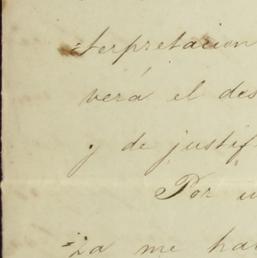 =terpretacion
verá el des
y de justif
Por u
=za me hai